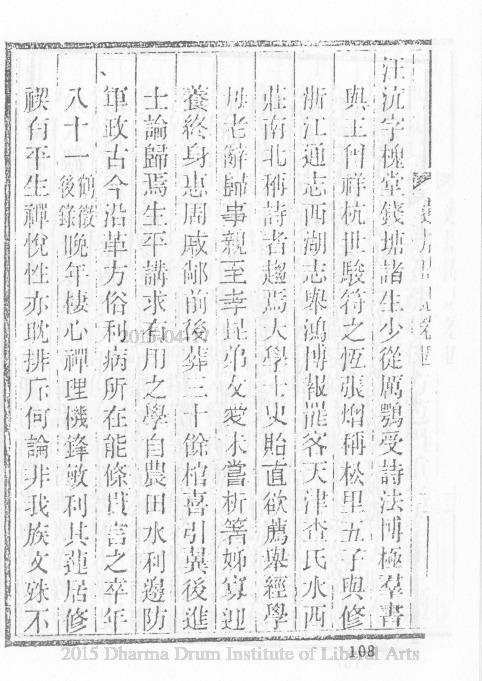 汪沆字槐堂錢塘諸生少從厲鶚受詩法博極羣書
與王曾祥杭世駿符之恆張熷稱松里五子與修
浙江通志西湖志舉鴻博報罷客天津查氏水西
莊南北稱詩者趨焉大學士史貽直欲薦舉經學
母老辭歸事親至孝昆弟友愛未嘗析箸姊寡迎
養終身惠周戚鄰前後葬三十餘棺喜引翼後進
士論歸焉生平講求有用之學自農田水利邊防
軍政古今沿革方俗利病所在能條貫言之卒年
八十一鶴徵後錄晚年棲心禪理機鋒敏利其蓮居修
禊有平生禪悅性亦耽排斥何論非我族文殊不
108
2015 Dharma Drum Institute of Liberal Arts